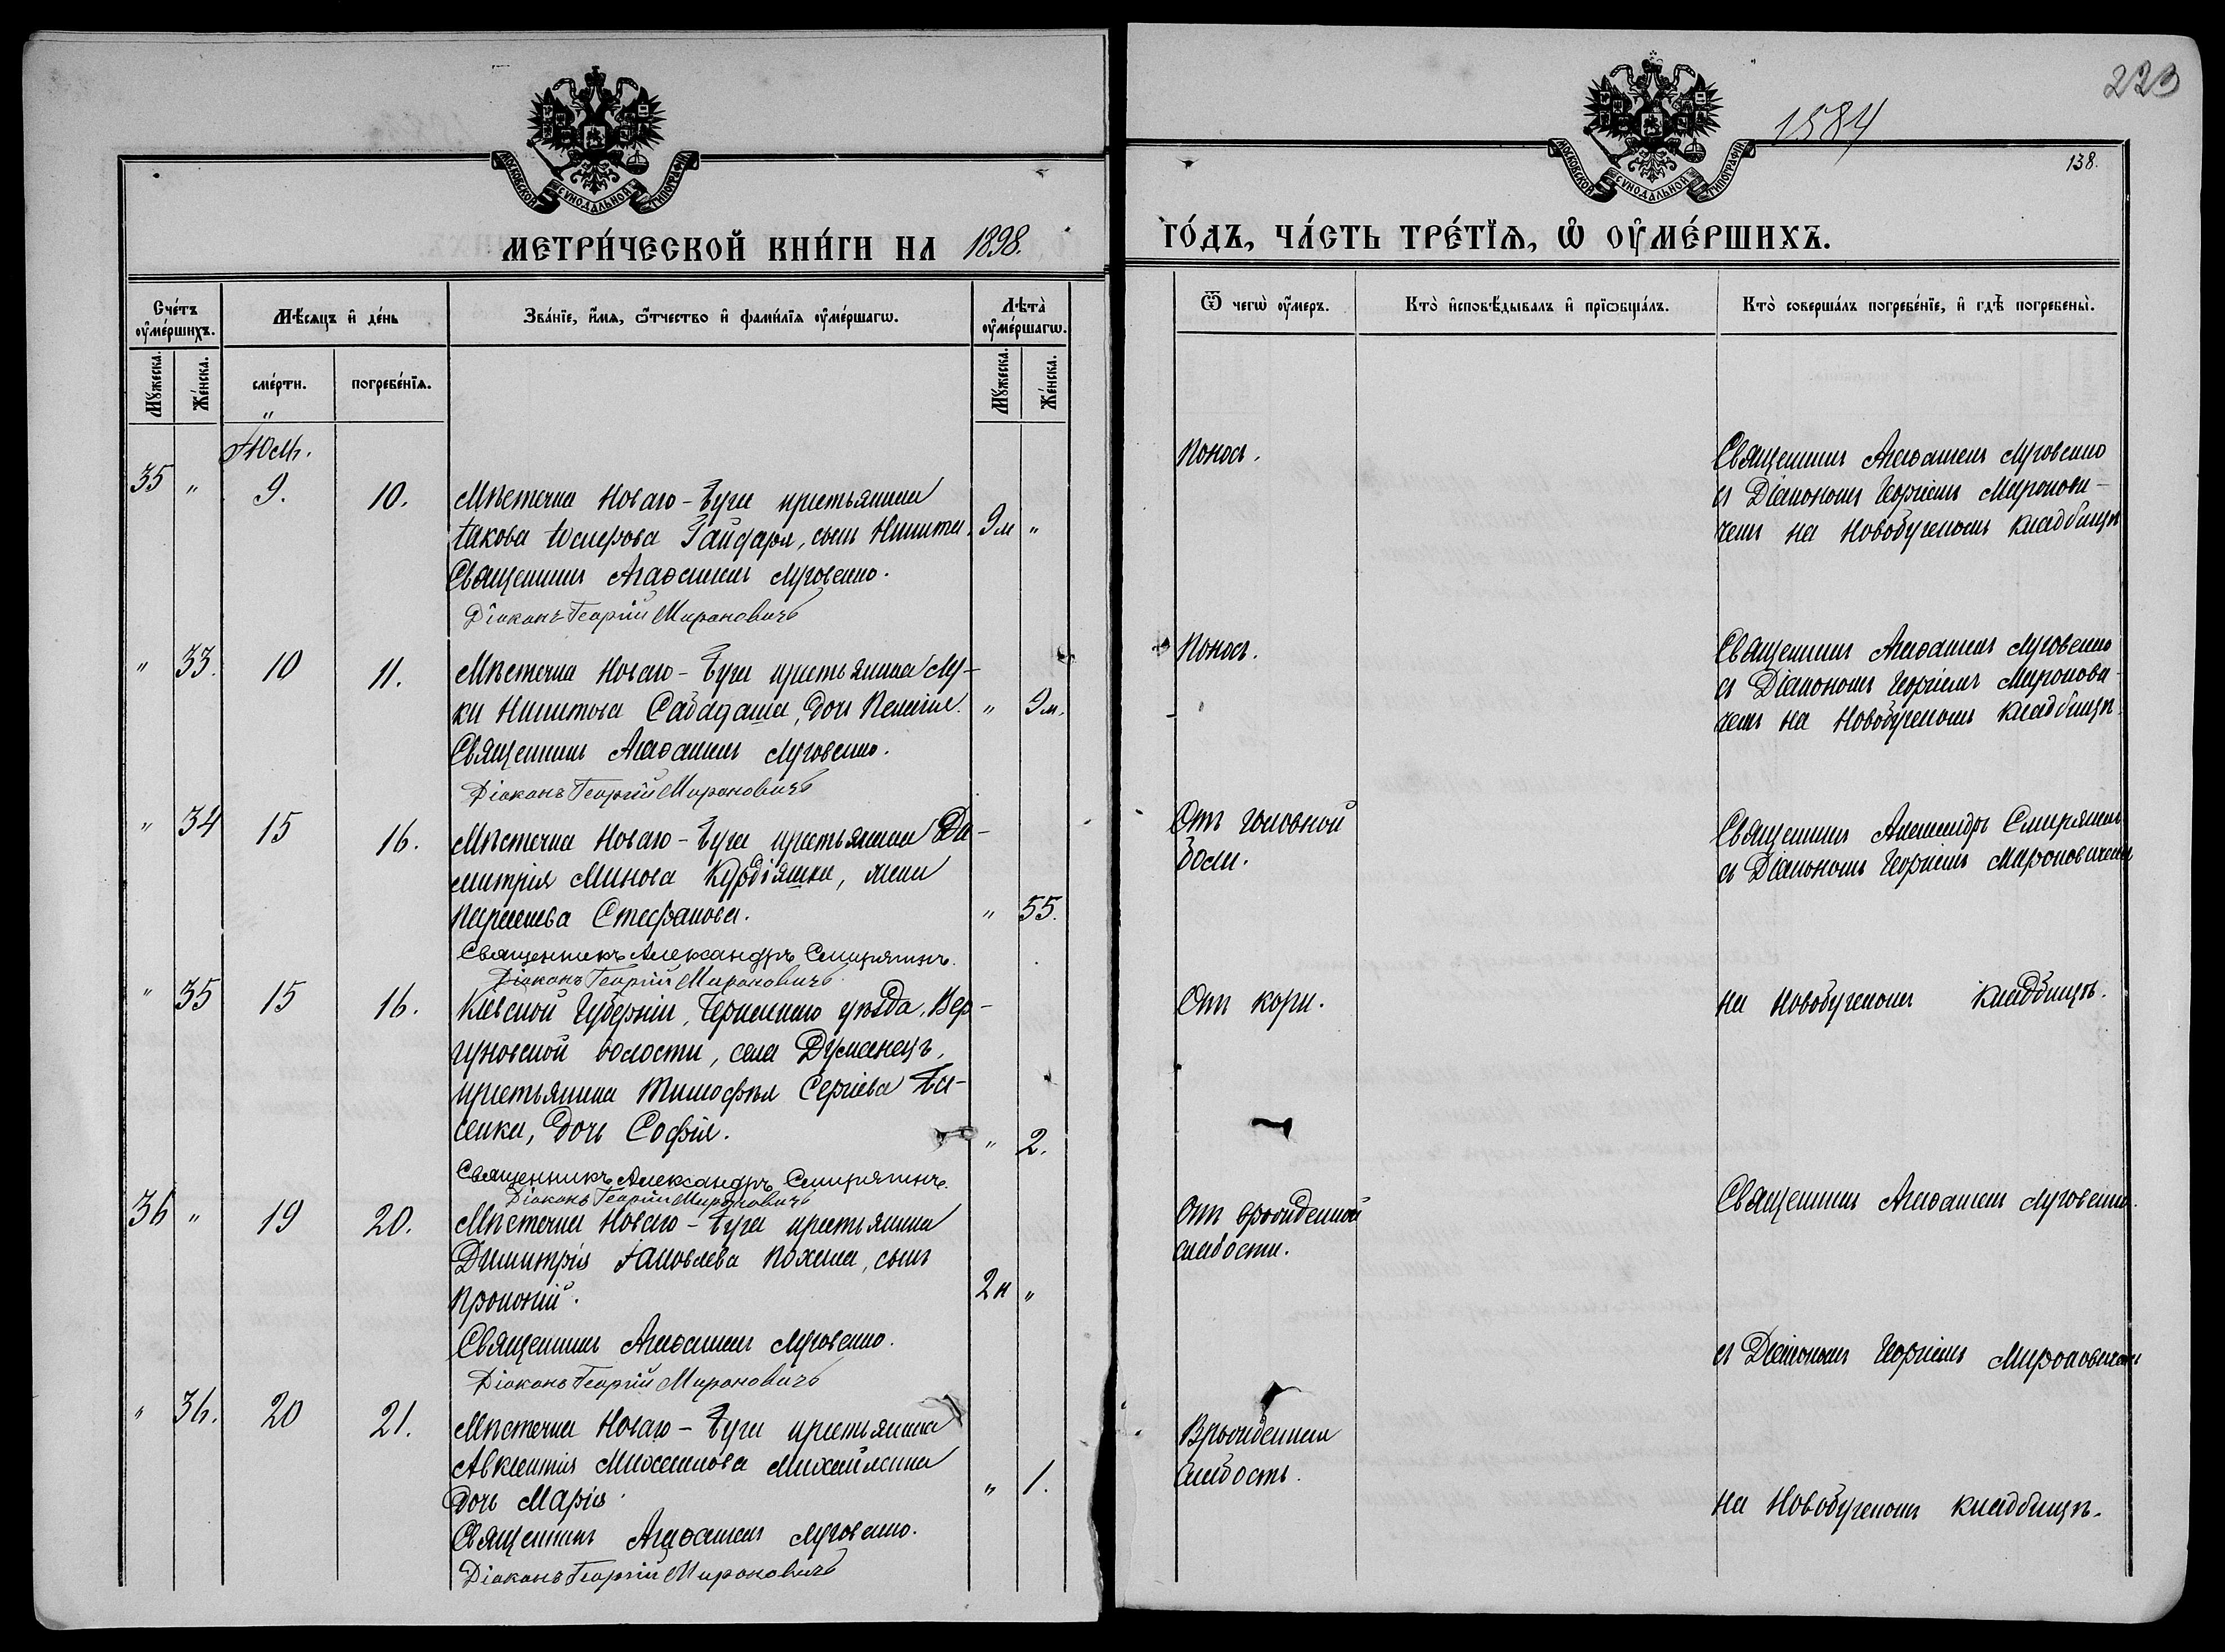 223
1584
138.
МОСКОВСКОЙ СѴНОДАЛЬНОЙ ТИПОГРАФІИ
МОСКОВСКОЙ СѴНОДАЛЬНОЙ ТИПОГРАФІИ
МЕТРИ́ЧЕСКОЙ КНИ́ГИ НА 1898.
ГО́ДЪ, ЧА́СТЬ ТРЕ́ТЇѦ, Ѡ҆ ОУ҆МЕ́РШИХЪ.
Сче́тъ оу҆ме́ршихъ.
Мѣ́сѧцъ и҆ де́нь
Зва́нїе, и҆́мѧ, ѻ҆́тчество и҆ фами́лїѧ оу҆ме́ршагѡ.
Лѣ́та оу҆ме́ршагѡ.
Ѿ чегѡ̀ оу҆́меръ.
Кто̀ и҆сповѣ́дывалъ и҆ прїѡбща́лъ.
Кто̀ соверша́лъ погребе́нїе, и҆ гдѣ̀ погребены̀.
Мꙋ́жеска.
Же́нска.
сме́рти.
погребе́нїѧ.
Мꙋ́жеска.
Же́нска.
Іюль.
35 " 9. 10. Мѣстечка Новаго-Буга крестьянина
Іакова Іосифова Гайдаря, сынъ Никита. 9 м "
Священникъ Агаѳангелъ Луговенко.
Діаконъ Георгій Мироновичъ
Поносъ.
Священникъ Агаѳангелъ Луговенко
съ Діакономъ Георгіемъ Миронови-
чемъ на Новобугскомъ кладбищѣ
" 33. 10 11. Мѣстечка Новаго-Буга крестьянина Лу-
ки Никитова Сабадаша, дочь Пелагія. " 9 м.
Священникъ Агаѳангелъ Луговенко.
Діаконъ Георгій Мироновичъ
Поносъ.
Священникъ Агаѳангелъ Луговенко
съ Діакономъ Георгіемъ Миронови-
чемъ на Новобугскомъ кладбищѣ.
" 34 15 16. Мѣстечка Новаго-Буга крестьянина Ди-
митрія Минова Курдіяшки, жена
Параскева Стефанова. " 55.
Священникъ Александръ Смирягинъ.
Діаконъ Георгій Мироновичъ
Отъ головной
боли.
Священникъ Александръ Смирягинъ
съ Діакономъ Георгіемъ Мироновичемъ
" 35 15 16. Кіевской Губерніи, Черкасскаго уѣзда, Вер-
гуновской волости, села Думанецъ,
крестьянина Тимофѣя Сергіева Ба-
сенки, дочь Софія. " 2.
Священникъ Александръ Смирягинъ.
Діаконъ Георгій Мироновичъ
Отъ кори.
на Новобугскомъ кладбищѣ.
36 " 19 20. Мѣстечка Новаго-Буга крестьянина
Димитрія Іаковлева Похила, сынъ
Прокопій. 2 н "
Священникъ Агаѳангелъ Луговенко.
Діаконъ Георгій Мироновичъ
Отъ врожденной
слабости.
Священникъ Агаѳангелъ Луговенко.
съ Діакономъ Георгіемъ Мироновичемъ
" 36. 20 21. Мѣстечка Новаго-Буга крестьянина
Авксентія Михайлова Михайлкина
дочь Марія. " 1.
Священникъ Агаѳангелъ Луговенко.
Діаконъ Георгій Мироновичъ
Врожденная
слабость.
на Новобугскомъ кладбищѣ.